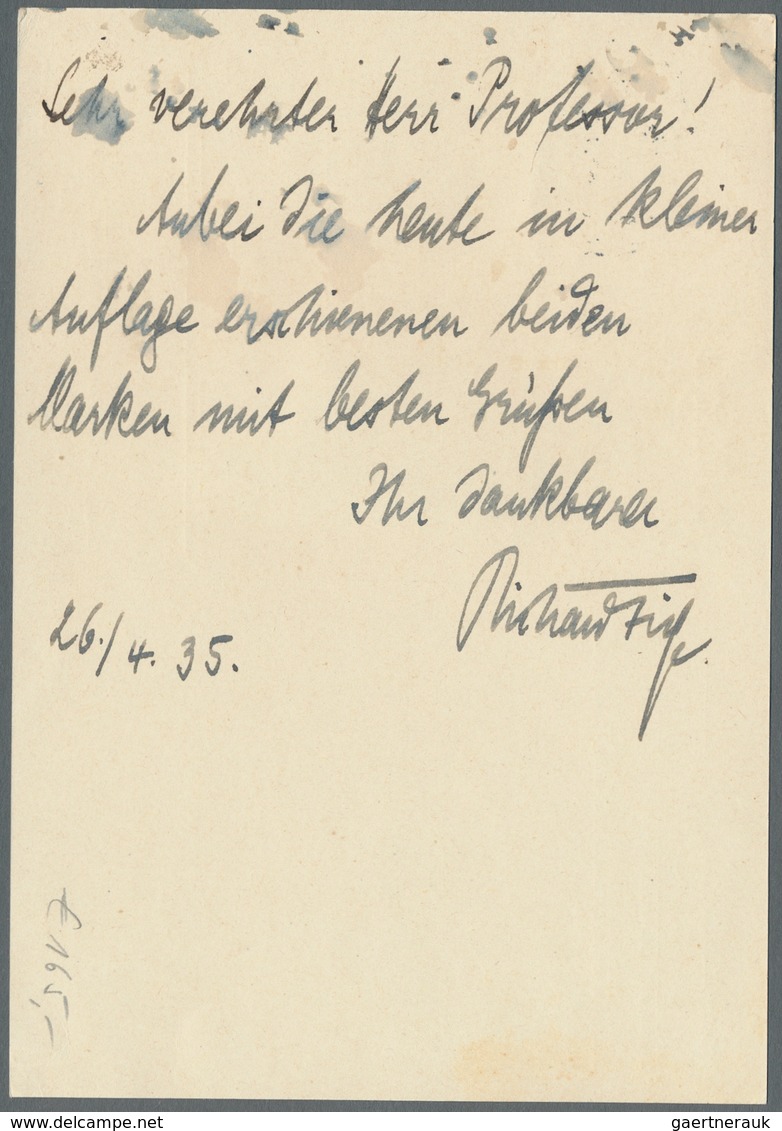 Sehr verehrter Herr Professor!
Anbei die heute in kleiner
Auflage erschienenen beiden
Marken mit besten Grüßen
Ihr dankbarer
Richard
26./4. 35.
165,-
gaertnerauk